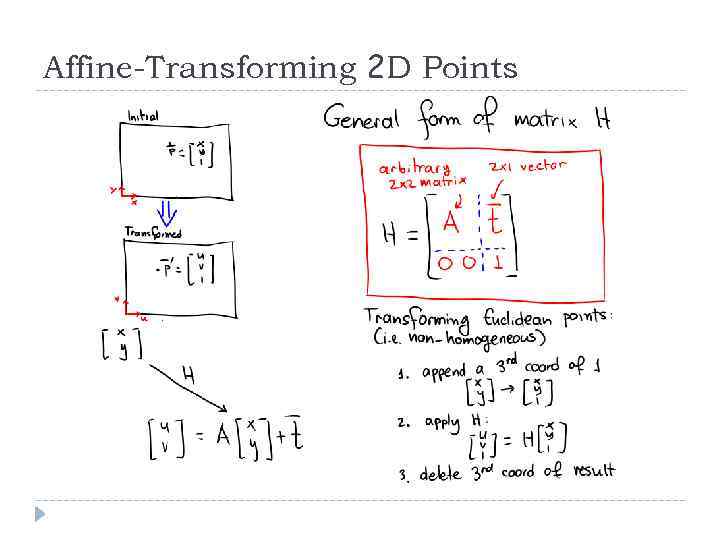 Affine-Transforming 2D Points
Initial
p̄ = [x y 1]
y
x
Transformed
p̄' = [u v 1]
v
u
[x y]
H
[u v] = A [x y] + t̄
General form of matrix H
arbitrary
2x2 matrix
2x1 vector
H = [A t̄
0 0 1]
Transforming Euclidean points:
(i.e. non-homogeneous)
1. append a 3rd coord of 1
[x y] → [x y 1]
2. apply H:
[u v 1] = H [x y 1]
3. delete 3rd coord of result